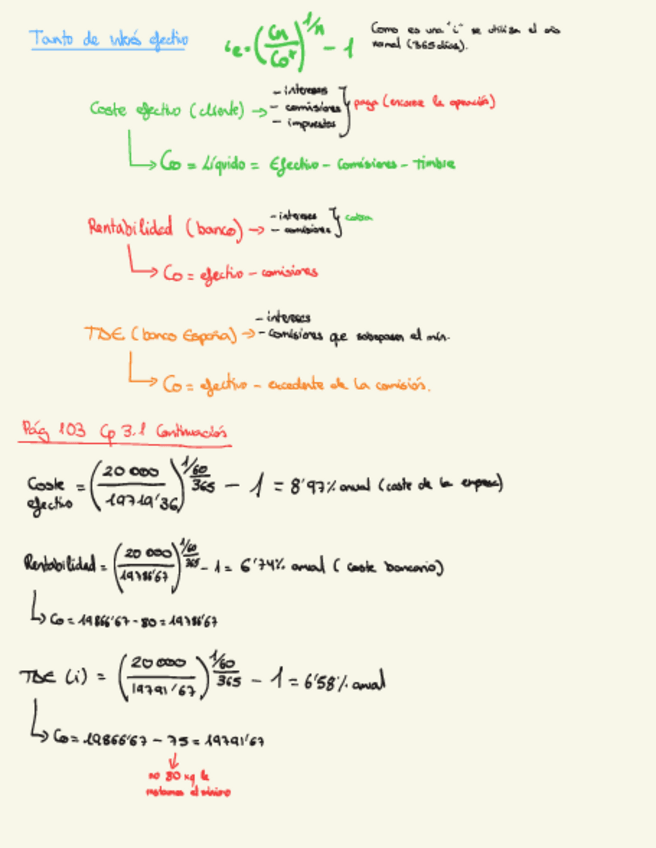 Tanto de interés efectivo
ie = (Cn/Co*)^1/n - 1
Como es una "i" se utiliza el año
normal (365 días).
Coste efectivo (cliente) → - intereses
- comisiones
- impuestos
} paga (encarece la operación)
↳ Co = Líquido = Efectivo - Comisiones - Timbre
Rentabilidad (banco) → - intereses
- comisiones
} cobra
↳ Co = efectivo - comisiones
TDE (banco España) → - intereses
- comisiones que sobrepasen el mín.
↳ Co = efectivo - excedente de la comisión.
Pág 103 Cp 3.1 Continuación
Coste efectivo = (20 000/19719'36)^1/60/365 - 1 = 8'97% anual (coste de la empresa)
Rentabilidad = (20 000/19786'67)^1/60/365 - 1 = 6'74% anual (coste bancario)
↳ Co = 19866'67 - 80 = 19786'67
TDE (i) = (20 000/19791'67)^1/60/365 - 1 = 6'58% anual
↳ Co = 19866'67 - 75 = 19791'67
↓
no 80 xq le
restamos el mínimo